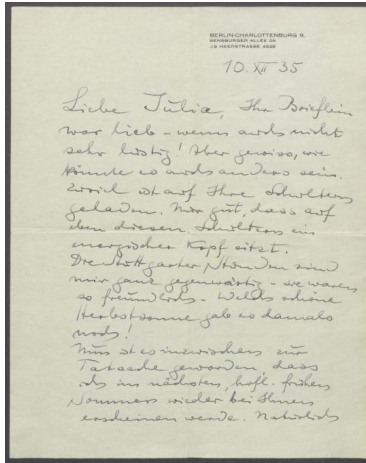 BERLIN-CHARLOTTENBURG 9.
ALLEE 
J9 HEERSTRASSE
10. XII 35
Liebe Julia, Ihr Brieflein
war lieb – wenn auch nicht
sehr lustig! Aber gewiss, wie
könnte es auch anders sein.
Zuviel ist auf Ihre Schultern
geladen. Nur gut, dass auf
eben diesen Schultern ein
energischer Kopf sitzt.
Die Stuttgarter Stunden sind
mir ganz gegenwärtig – sie waren
so freundlich. Welch schöne
Herbstsonne gab es damals
noch!
Nun ist es inzwischen zur
Tatsache geworden, dass
ich im nächsten, hoffl. frühen
Sommer wieder bei Ihnen
erscheinen werde. Natürlich